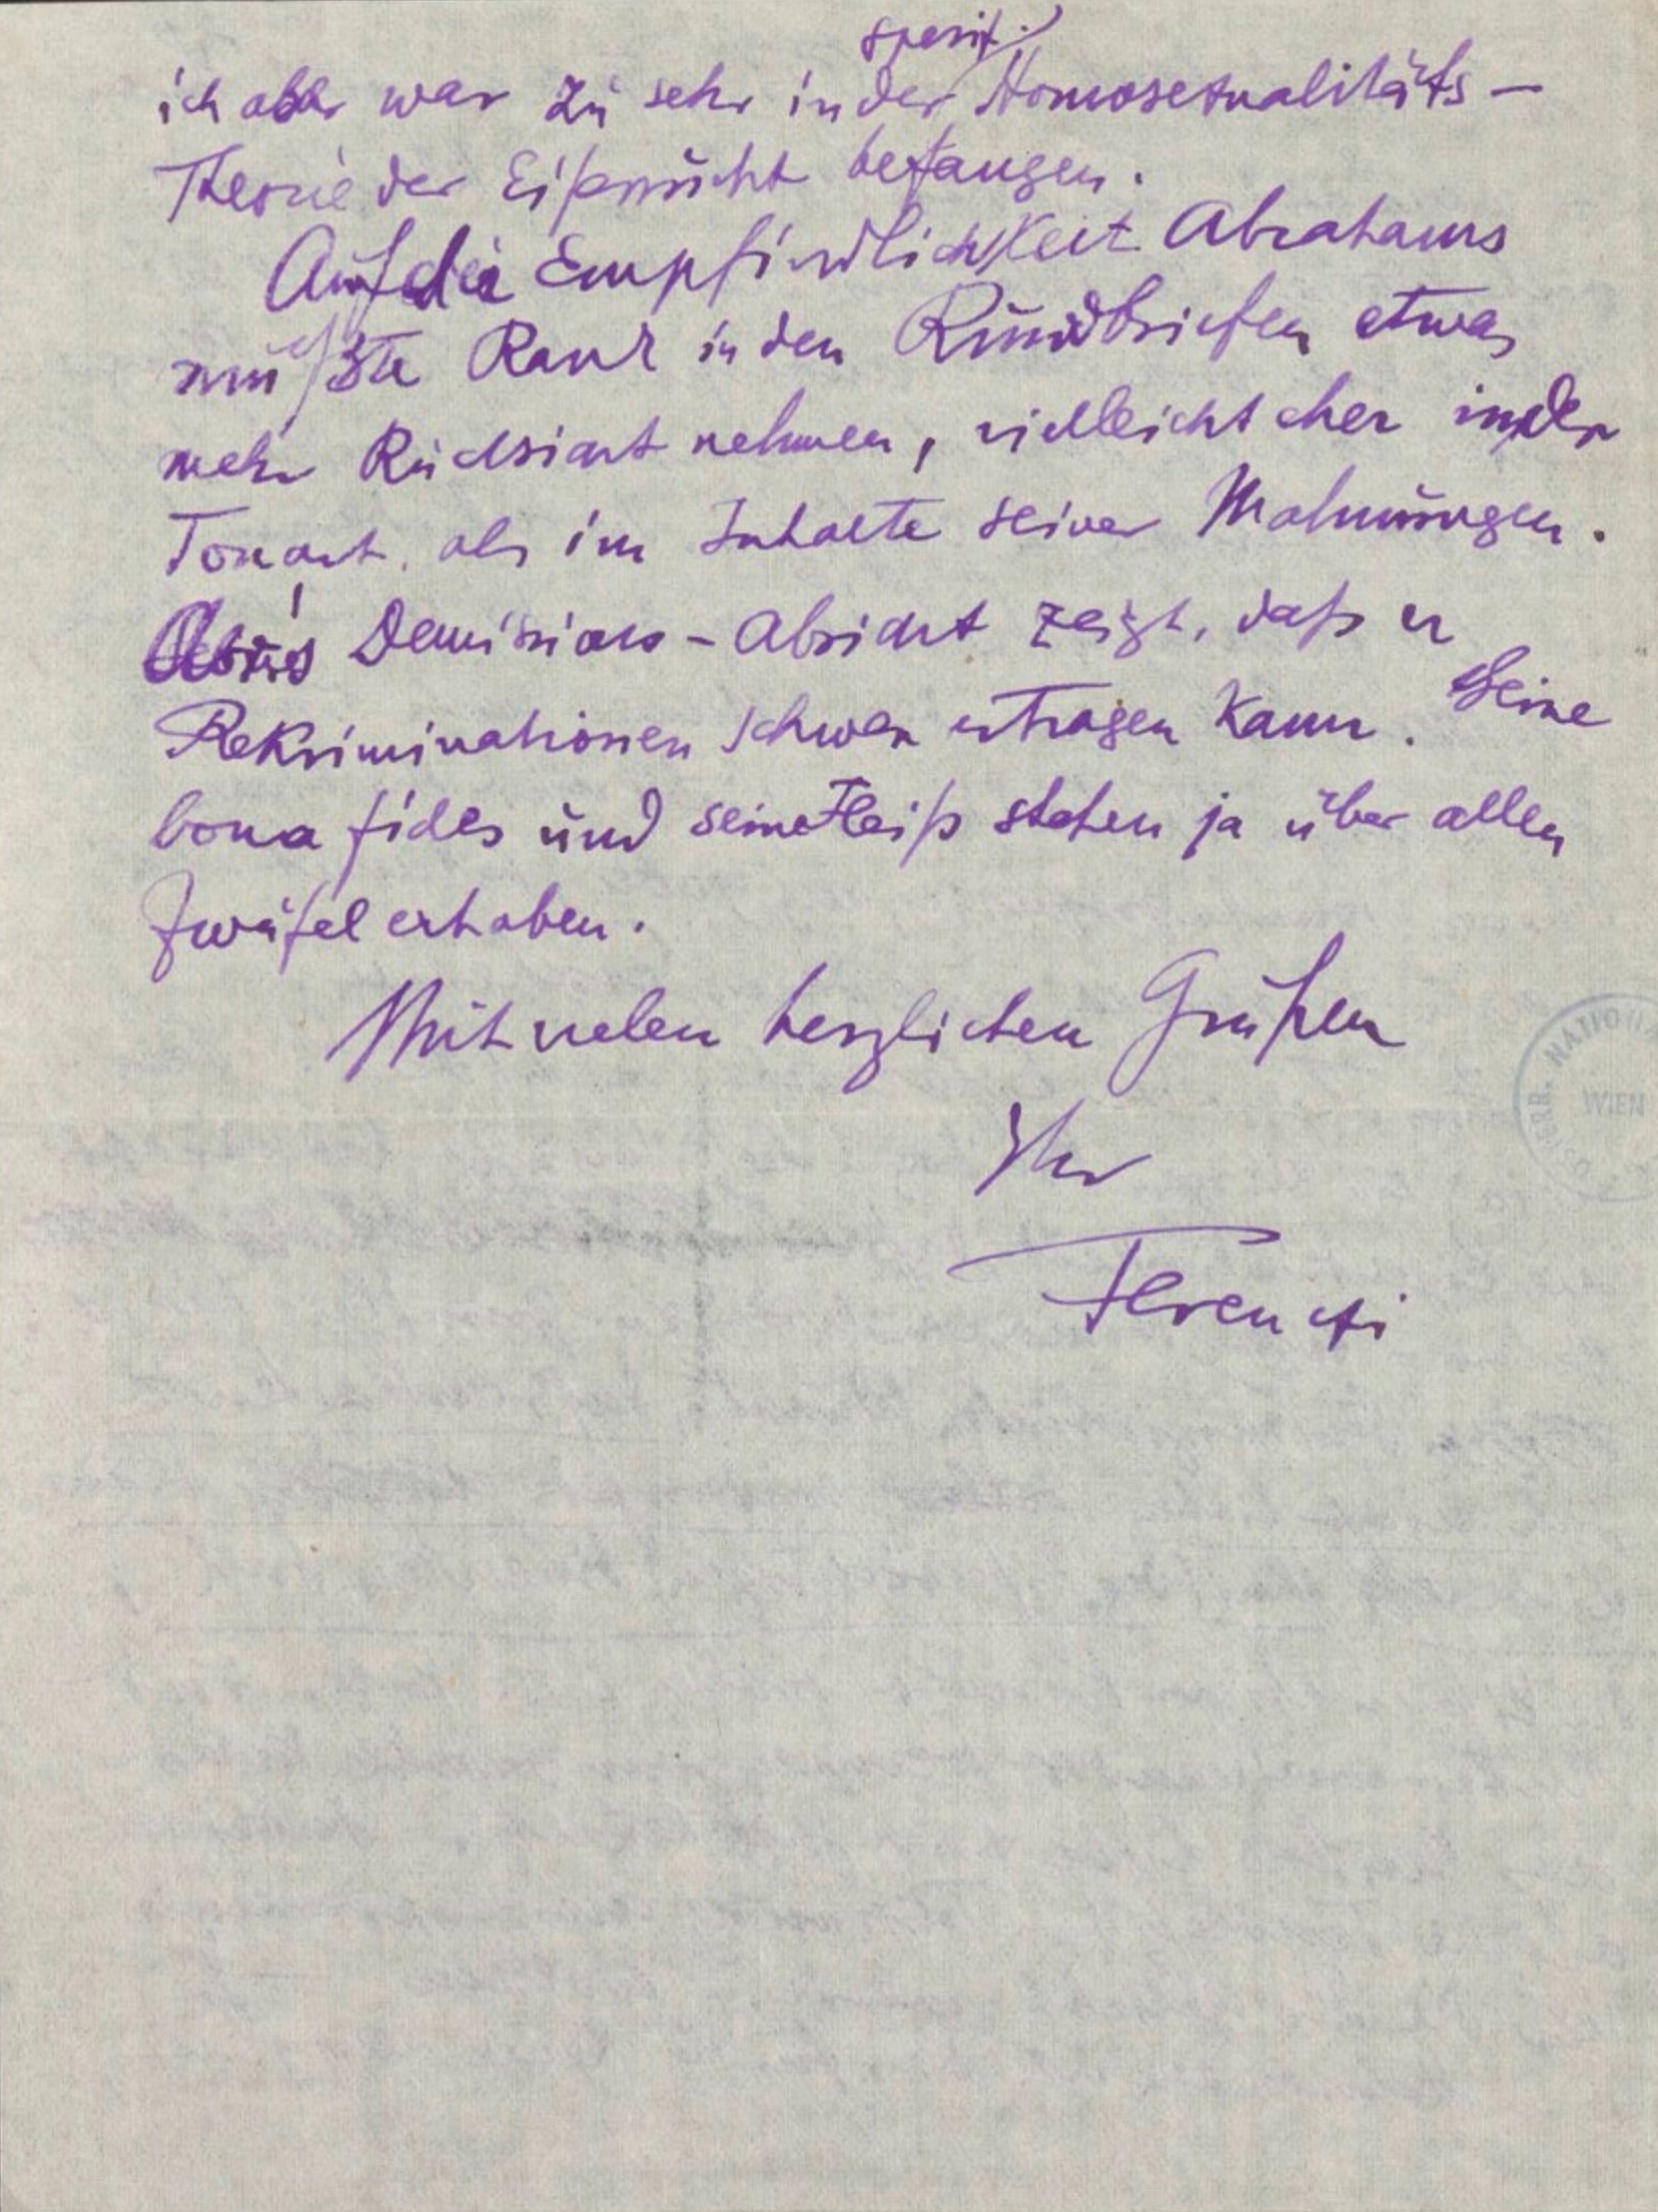 spezif.
ich aber war zu sehr in der Homosexualitäts-
Theorie der Eifersucht befangen.
Auf die Empfindlichkeit Abrahams
müßte Rank in den Rundbriefen etwas
mehr Rücksicht nehmen, vielleicht eher in der
Tonart, als im Inhalte seiner Mahnungen.
Demissions-Absicht zeigt, daß er
Rekriminationen schwer ertragen kann. Seine
bona fides und sein Fleiß stehen ja über allen
Zweifel erhaben.
Mit vielen herzlichen Grüßen
Ihr
Ferenczi
NATIONA
WIEN